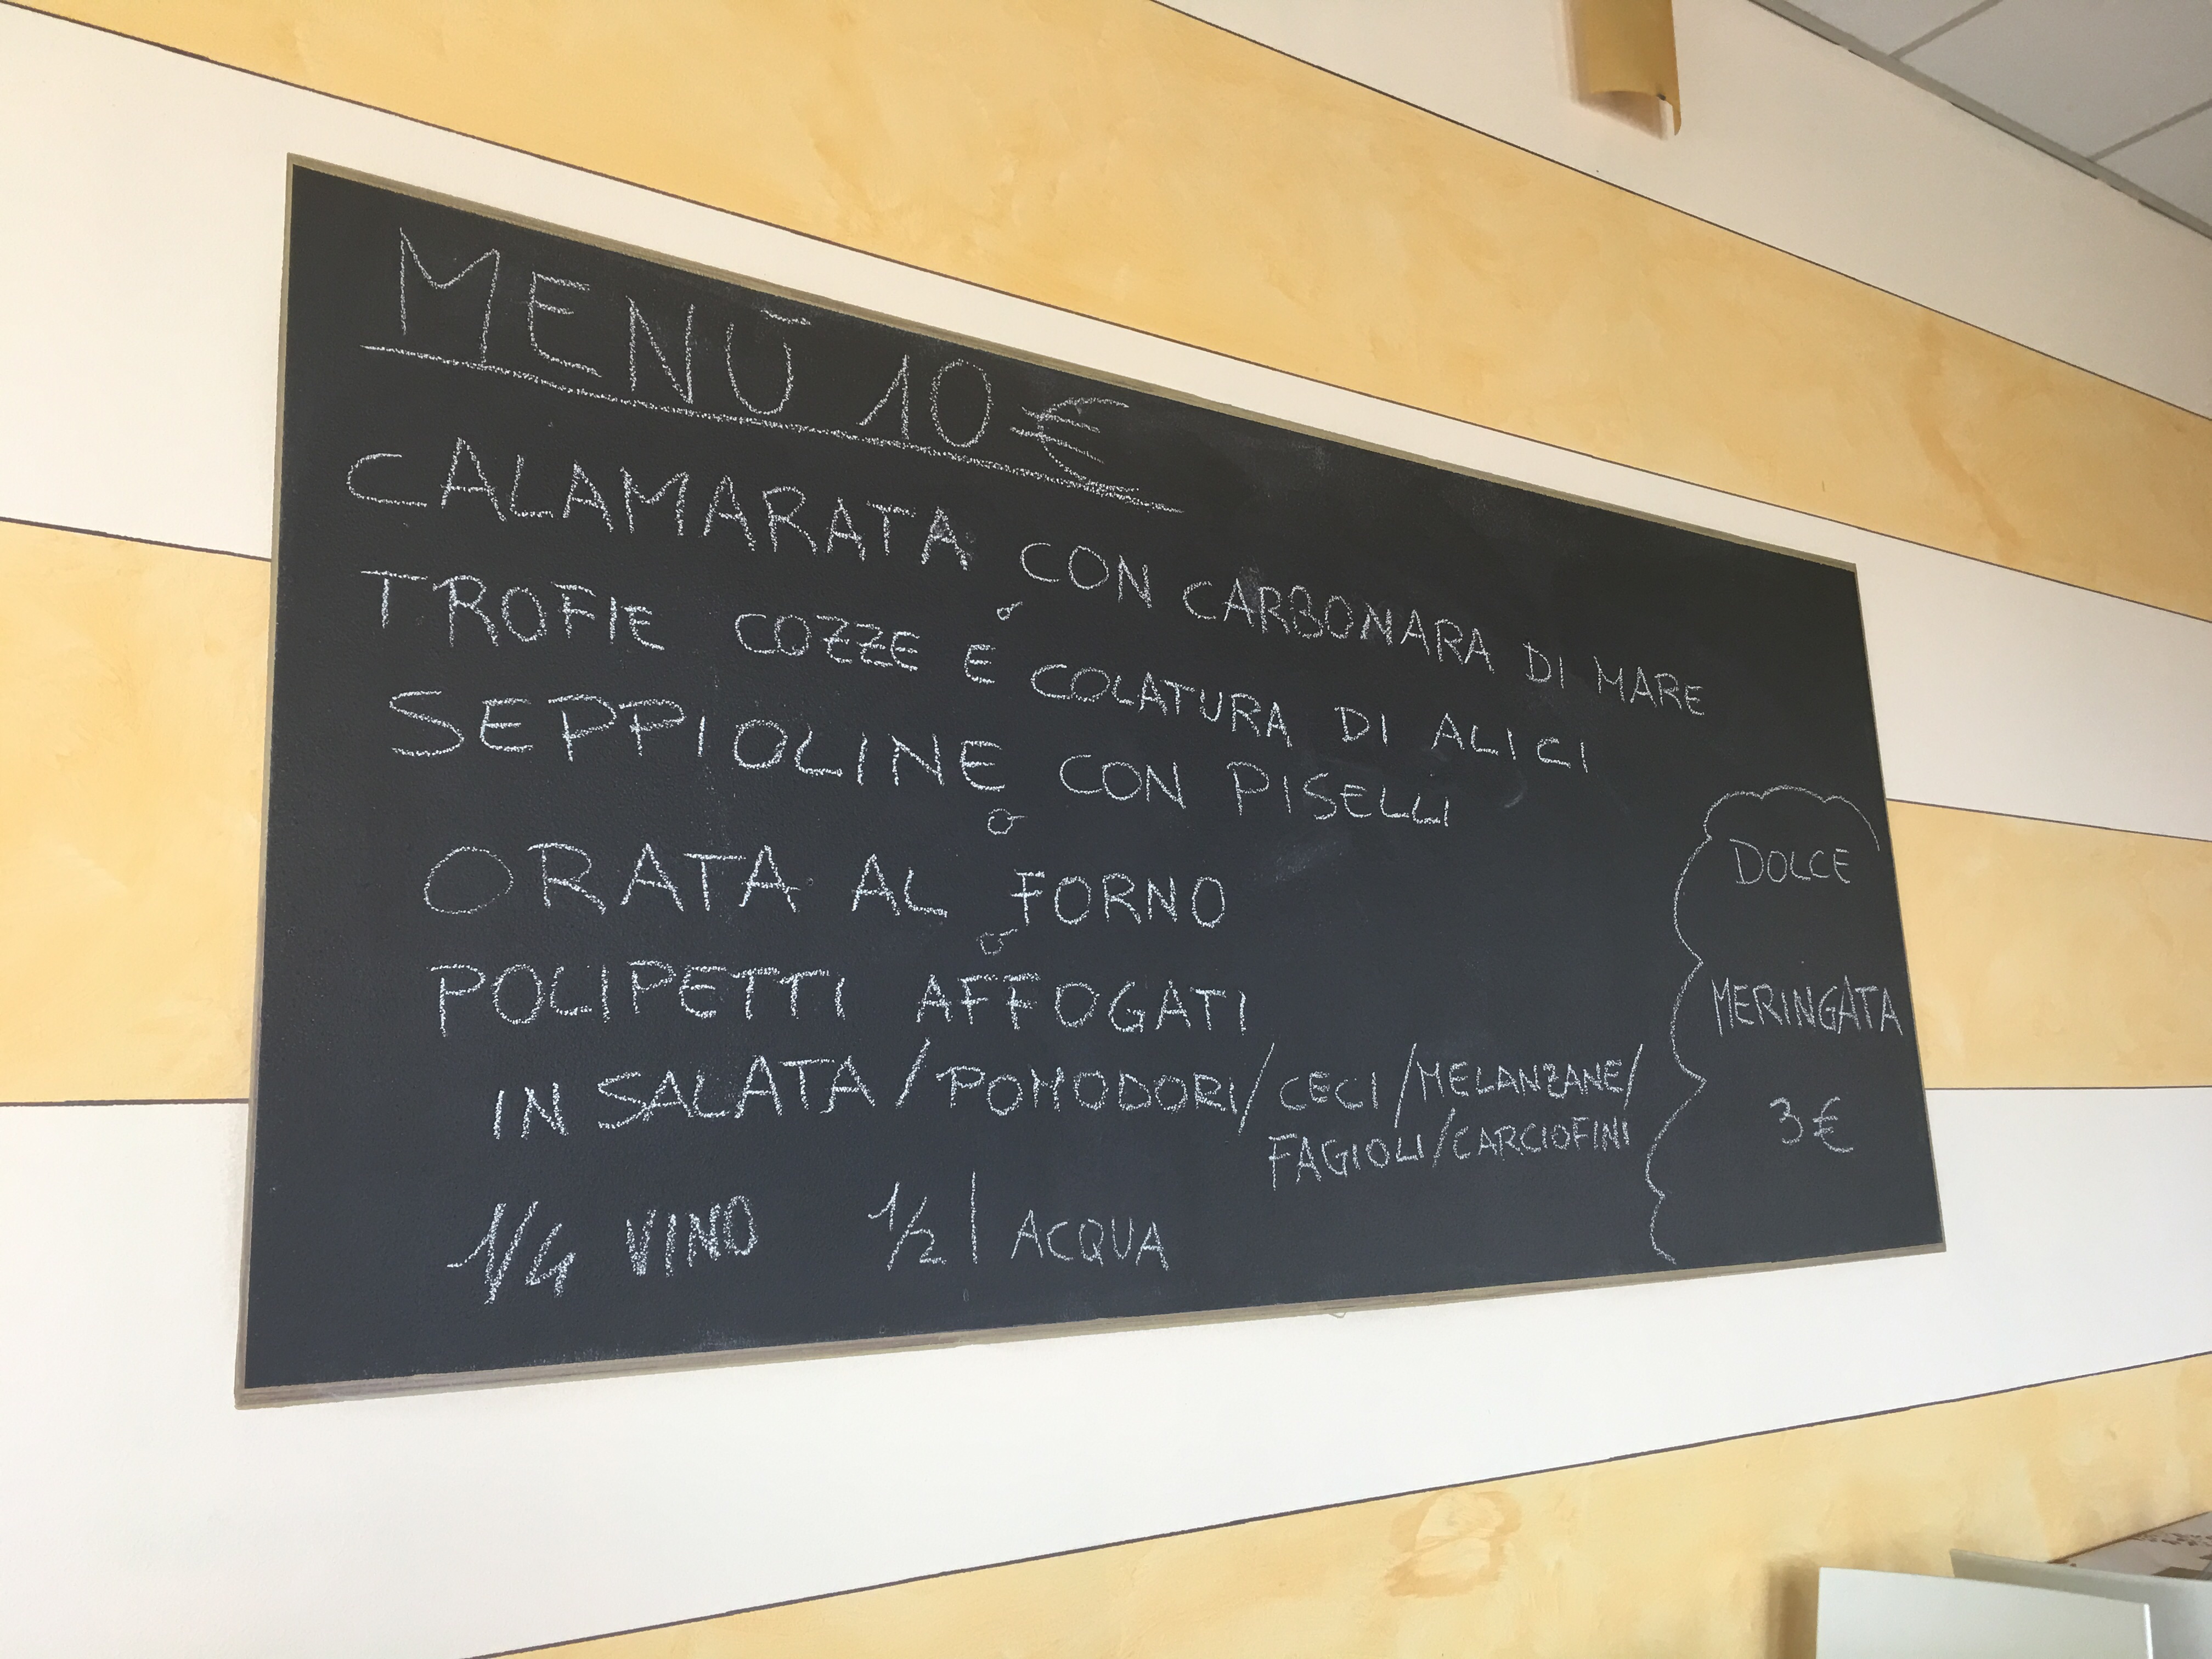 MENÙ 10 €
CALAMARATA CON CARBONARA DI MARE
o
TROFIE COZZE E COLATURA DI ALICI
SEPPIOLINE CON PISELLI
o
ORATA AL FORNO
o
POLIPETTI AFFOGATI
INSALATA / POMODORI / CECI / MELANZANE /
FAGIOLI / CARCIOFINI
1/4 VINO 1/2 l ACQUA
DOLCE
MERINGATA
3 €